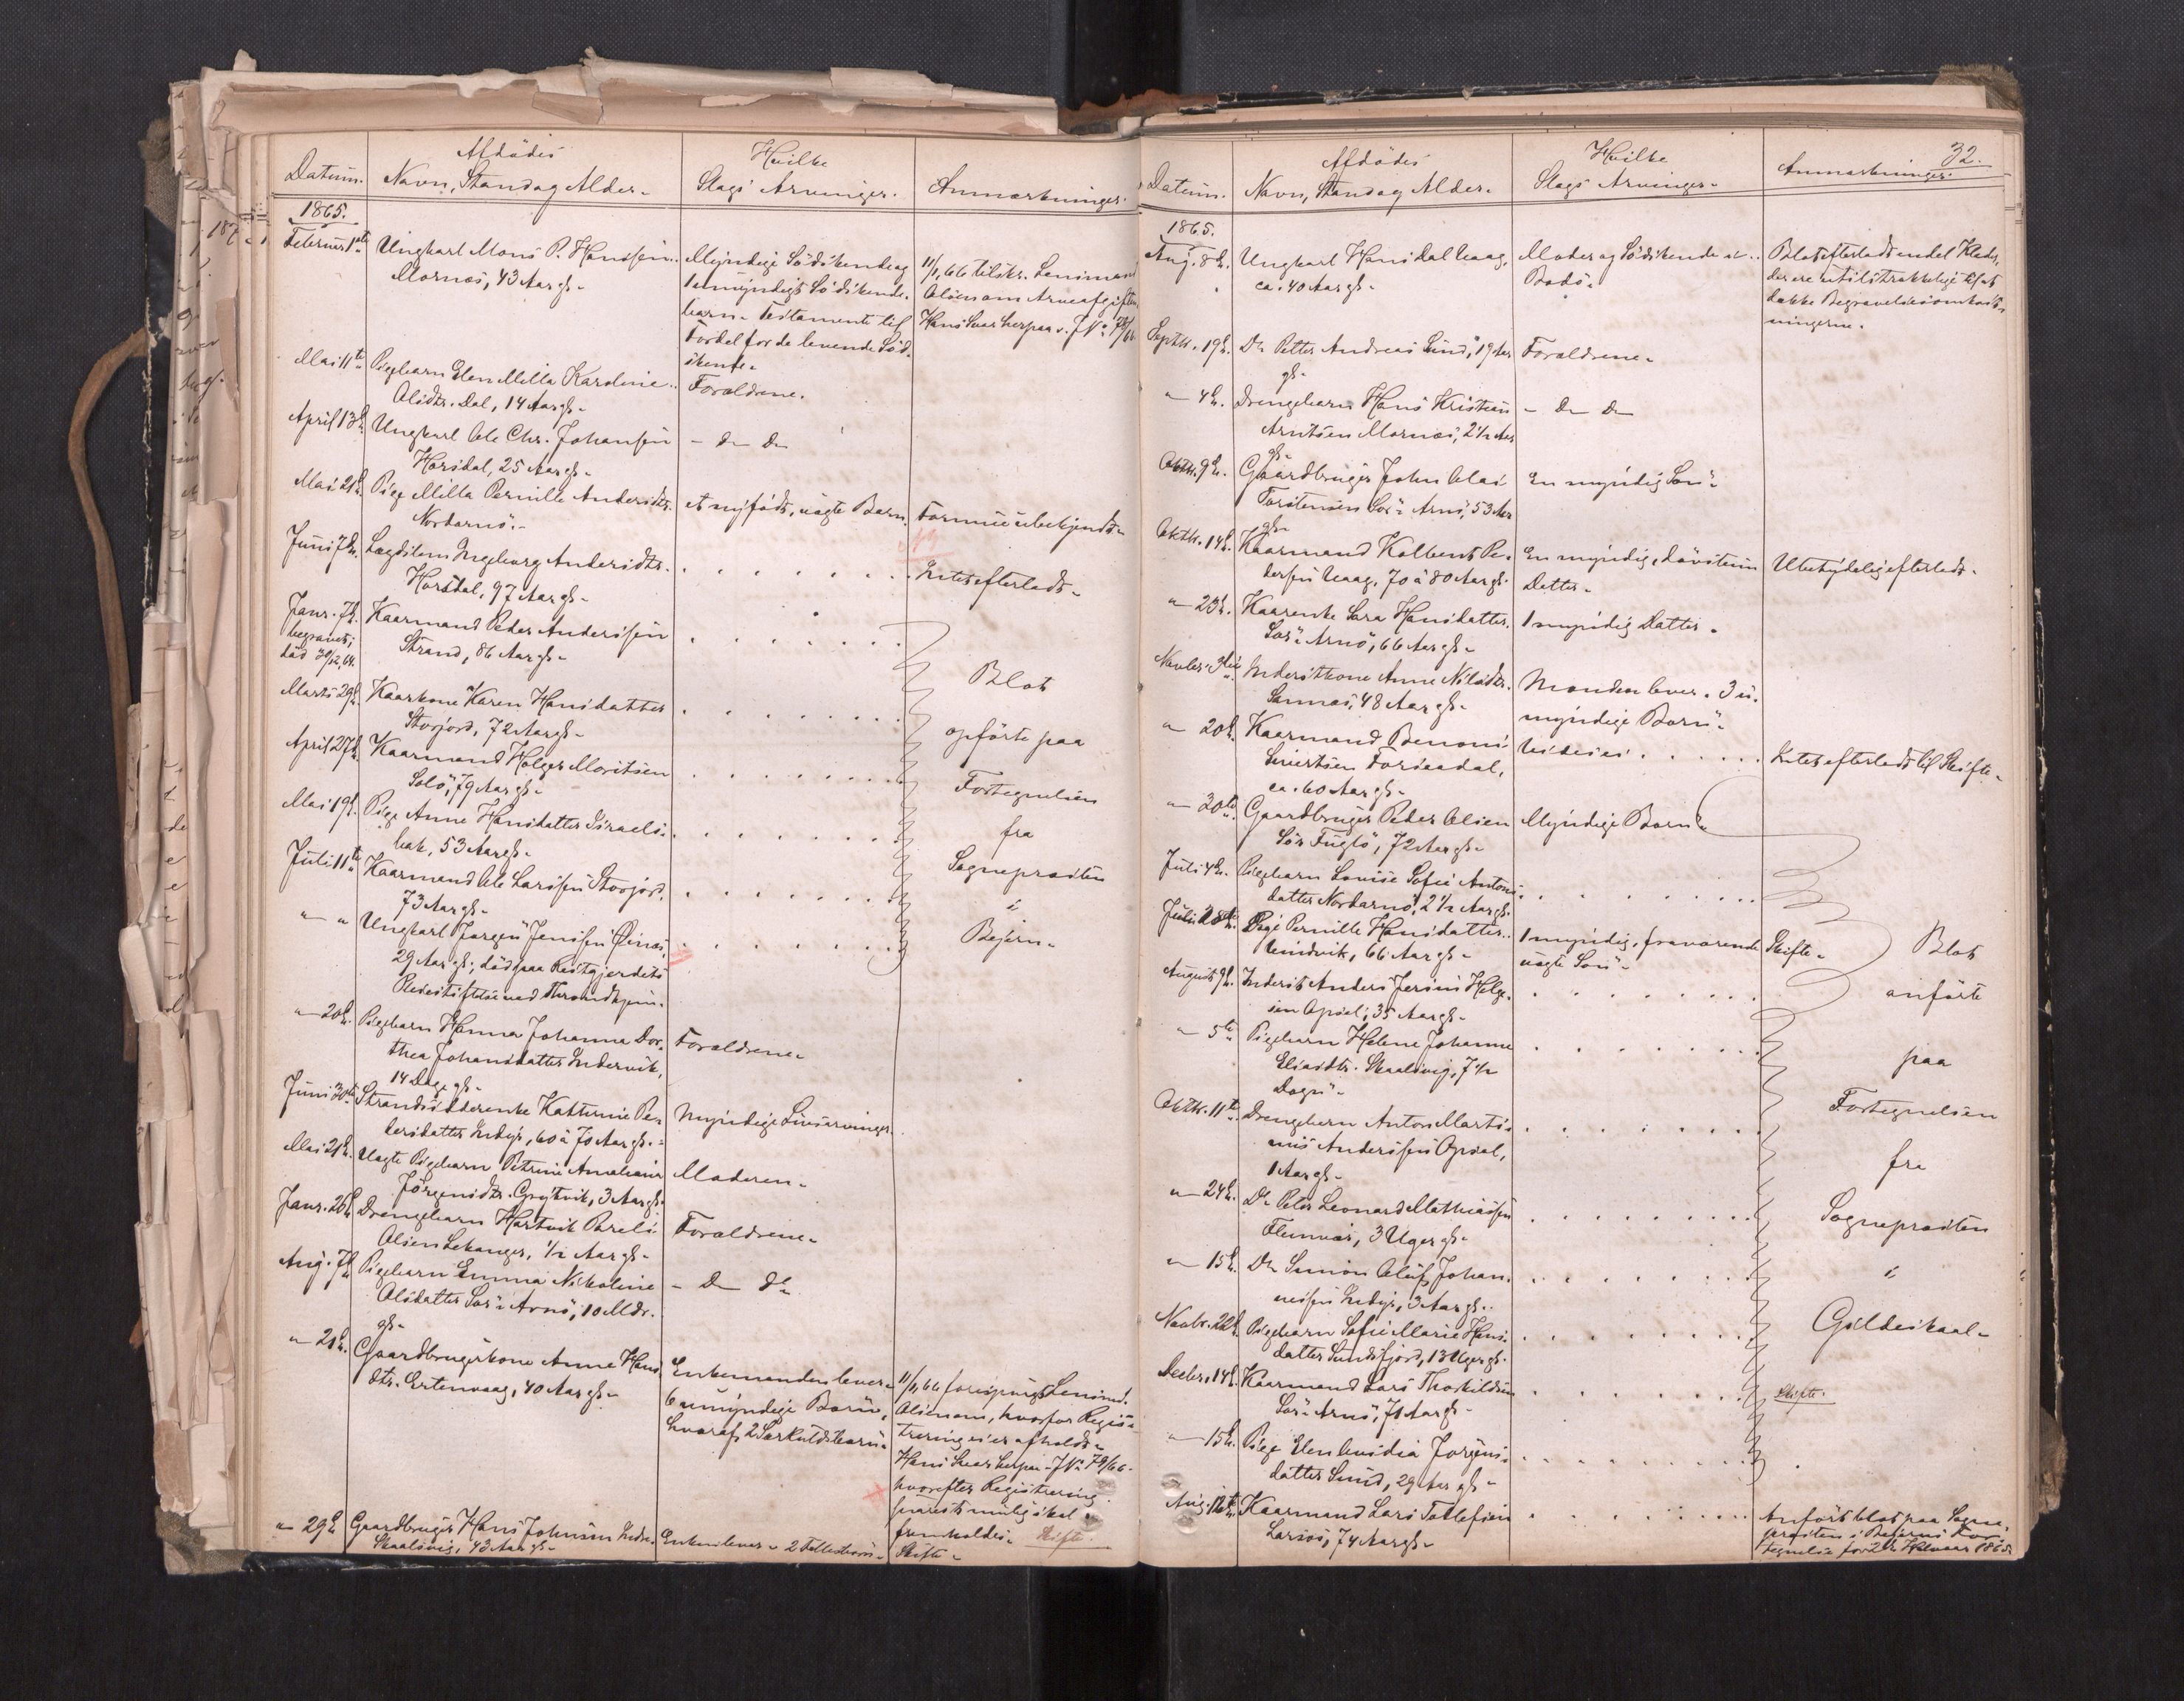 Datum.
Afdödes
Navn, Stand og Alder.
Hvilke
Slags Arvinger.
Anmærkninger.
1865.
Februar 1ste
Ungkarl Mons P. Hanssen
Mornæs, 43 Aar gl.
Myndige Södskende og
1 umyndigt Södskende-
barn. Testamente til
Fordel for de levende Söd-
skende.
11/1 66 tilskr. Lensmand
Olsen om Arveafgiften.
Hans Svar herpaa v. J. No 78/66
Mai 11te
Pigebarn Elen Milla Karoline
Olsdtr. Dal, 14 Aar gl.
Forældrene.
April 13de
Ungkarl Ole Chr. Johansen
Horsdal, 25 Aar gl.
- do do
Mai 21de
Pige Milla Pernille Andersdtr.
Nordarnö.
et nyfödt, uægte Barn.
Formue ubekjendt.
Juni 7de
Lægdslem Ingeborg Andersdtr.
Horsdal, 97 Aar gl.
Intet efterladt.
Janr. 7de
begravet;
död 30/12 64.
Kaarmand Peder Anderssen
Strand, 86 Aar gl.
Marts 29de
Kaarkone Karen Hansdatter
Storjord, 72 Aar gl.
April 27de
Kaarmand Holger Moritsen
Solö, 79 Aar gl.
Mai 19de
Pige Anne Hansdatter Israels-
bak, 53 Aar gl.
Juli 11te
Kaarmand Ole Larssen Storjord,
73 Aar gl.
" "
Ungkarl Jörgen Jenssen Öinæs,
29 Aar gl; död paa Reitgjerdets
Pleiestiftelse ved Throndhjem.
Blot
opförte paa
Fortegnelsen
fra
Sognepræsten
i
Bejern.
" 20de
Pigebarn Hanna Johanna Dor-
thea Johansdatter Indervik,
14 Dage gl.
Forældrene.
Juni 30te
Strandsidderenke Katrine Pe-
dersdatter Indyr, 60 à 70 Aar gl.
Myndige Livsarvinger.
Mai 21de
Uægte Pigebarn Petrine Amalia
Jörgensdtr. Grytvik, 3 Aar gl.
Moderen.
Janr. 26de
Drengebarn Hartvik Pareli
Olsen Lekanger, 1/2 Aar gl.
Forældrene.
Aug. 7de
Pigebarn Emma Nikoline
Olsdatter Sör-Arnö, 10 Mdr.
gl.
- do do
" 21de
Gaardbrugerkone Anne Hans-
dtr. Ertenvaag, 40 Aar gl.
Enkemanden lever.
6 umyndige Börn,
hvoraf 2 Særkuldsbörn.
11/1 66 forespurgt Lensmd.
Olsen om, hvorfor Regis-
trering ei er afholdt.
Hans Svar herpaa J. No 79/66.
hvorefter Registrering
snarest mulig skal
fremholdes. Skifte.
" 29de
Gaardbruger Hans Johnsen Indre
Skaalsvig, 43 Aar gl.
Enken lever. 2 Fællesbörn.
Skifte.
32.
Datum.
Afdödes
Navn, Stand og Alder.
Hvilke
Slags Arvinger.
Anmærkninger.
1865.
Aug. 8de
Ungkarl Hans Dal Vaag,
ca. 40 Aar gl.
Moder og Södskende
Bodö.
Blot efterladt endel Klæder,
der ere utilstrækkelige til at
dække Begravelsesomkost-
ningerne.
Septbr. 19de
Do Petter Andreas Sund, 19 Aar
gl.
Forældrene.
" 4de
Drengebarn Hans Kristian
Arntsen Mornæs, 2 1/2 Aar
gl.
- do do
Oktbr. 9de
Gaardbruger John Olai
Torstensen Sör-Arnö, 53 Aar
gl.
En myndig Sön.
Oktbr. 14de
Kaarmand Kolbent Pe-
dersen Vaag, 70 à 80 Aar gl.
En myndig, dövstum
Datter.
Ubetydelig efterladt.
" 23de
Kaarenke Sara Hansdatter
Sör-Arnö, 66 Aar gl.
1 myndig Datter.
Novbr. 9de
Inderstkone Anne Nilsdtr.
Sannæs, 48 Aar gl.
Manden lever. 3 u-
myndige Börn.
" 20de
Kaarmand Benoni
Sivertsen Forsaadal,
ca. 60 Aar gl.
Intet efterladt til Skifte.
" 30te
Gaardbruger Peder Olsen
Sör Fuglö, 72 Aar gl.
Myndige Börn.
Juli 4de
Pigebarn Lovise Sofie Antons-
datter Nordarnö, 2 1/2 Aar gl.
Juli 28de
Pige Pernille Hansdatter
Vindvik, 66 Aar gl.
1 myndig, fraværende
uægte Sön.
Skifte.
August 9de
Inderst Anders Jerius Helge-
sen Opsal, 35 Aar gl.
" 5te
Pigebarn Helene Johanne
Eliasdtr. Skaalsvig, 7 1/2
Dögn.
Oktbr. 11te
Drengebarn Anton Marti-
nus Anderssen Opsal,
1 Aar gl.
" 24de
Do Peter Leonard Mathiassen
Fleinvær, 3 Uger gl.
" 15de
Do Simon Oluf Johan-
nessen Indyr, 3 Aar gl.
Novbr. 22de
Pigebarn Sofie Marie Hans-
datter Sundsfjord, 13 Uger gl.
Decbr. 14de
Kaarmand Lars Thorkildsen
Sör-Arnö, 71 Aar gl.
Skifte.
" 15de
Pige Elen Ovidia Jörgens-
datter Sund, 29 Aar gl.
Blot
anförte
paa
Fortegnelsen
fra
Sognepræsten
i
Gildeskaal.
Aug. 12te
Kaarmand Lars Tollefsen
Larsos, 74 Aar gl.
Anfört blot paa Sogne-
præsten i Bejerns For-
tegnelse for 2det Halvaar 1865.